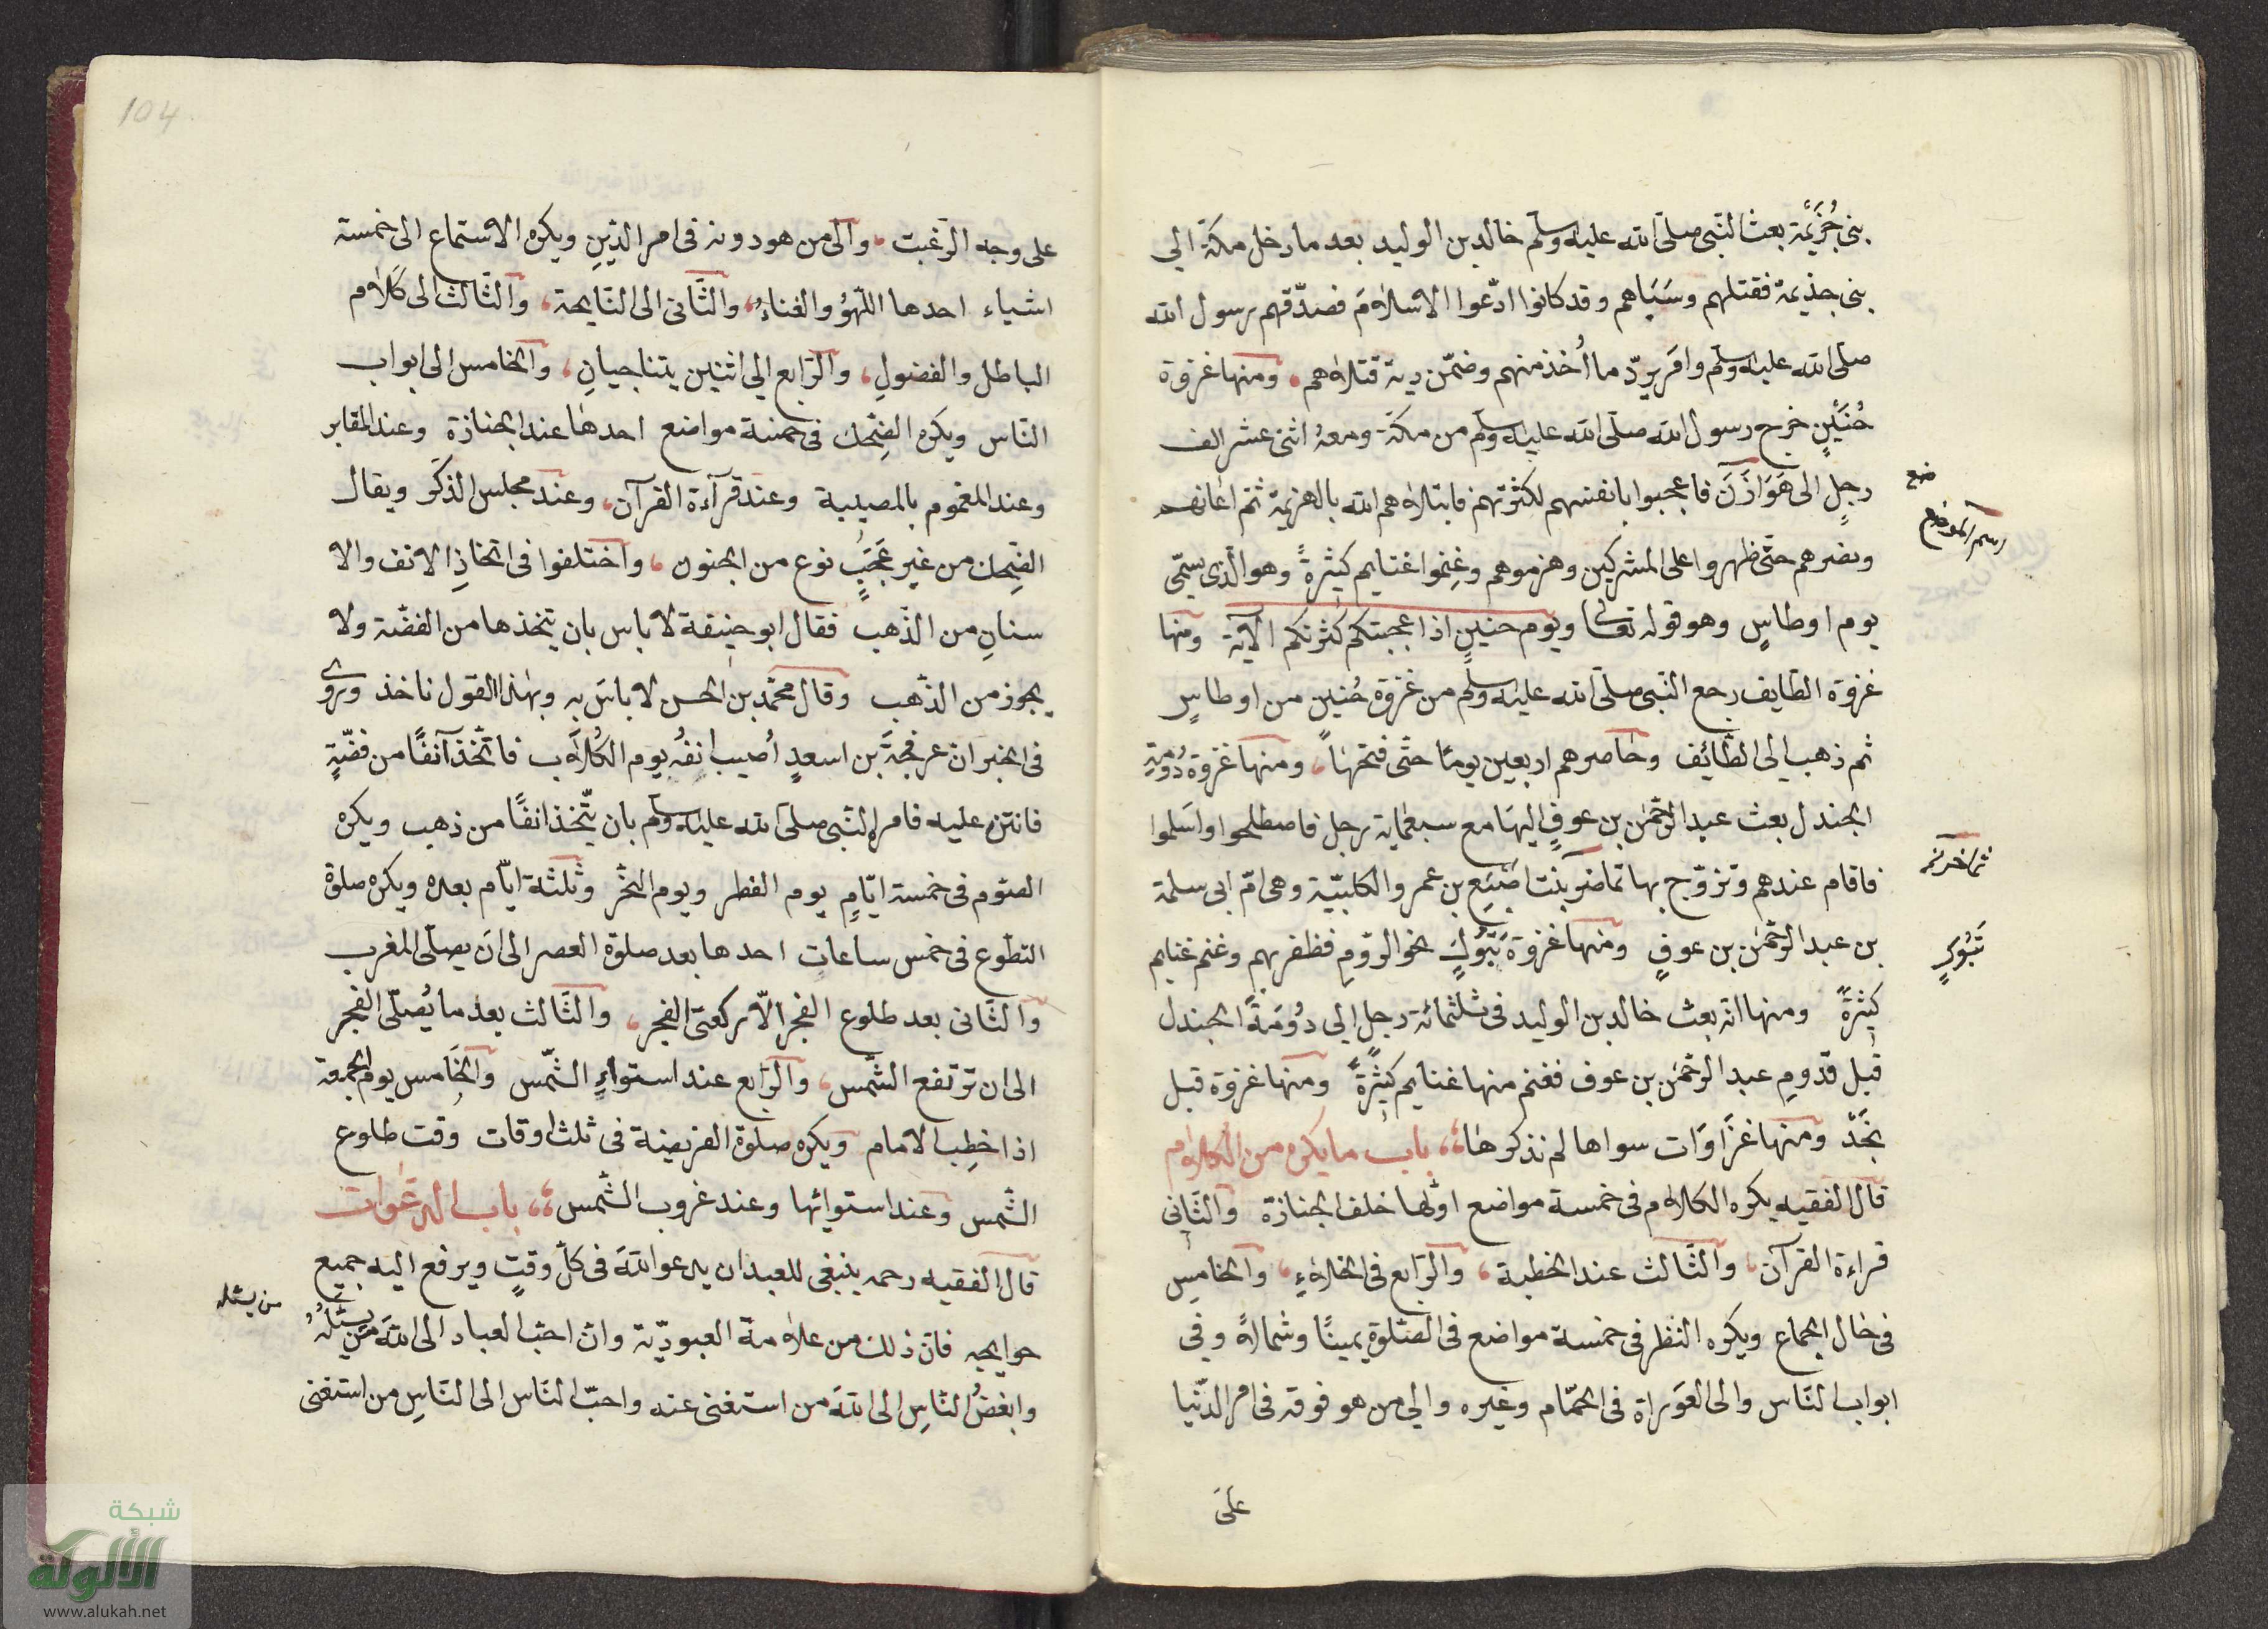 بنى جُزَيْمَة بعث النّبى صلّى الله عليه وسلّم خالد بن الوليد بعد ما دخل مكّة الي
بنى جذيمة فقتلهم وسَبَاهم وقد كانوا ادّعوا الاسلامَ فصدّقهم رسول الله
صلّى الله عليه وسلّم وامَر بردّ ما اُخذ منهم وضمّن دية قتلاهم، ومنها غزوة
حُنَيْنٍ خرج رسول الله صلّى الله عليه وسلّم من مكّة ومعهُ اثنى عشر الف
رجلٍ الى هَوَازَنَ فاعجبوا بانفسهم لكثرتهم فابتلاهم الله بالهزيمة ثمّ اعانهم
ونصرهم حتّى ظهروا على المشركين وهزموهم وغنِموا غنايم كثيرةً وهو الّذى يسمّى
يوم اوطاسٍ وهو قوله تعالى ويوم حنينٍ اذ اعجبتكم كثرتكم الآية ومنها
غزوة الطّايف رجع النّبى صلّى الله عليه وسلّم من غزوة حُنين من اوطاسٍ
ثم ذهب الى الطّائِف وحاصرهم اربعين يومًا حتّى فتحها، ومنها غزوة دُومةِ
الجندل بعث عبد الرّحمٰن بن عوفٍ اليهَا مع سبعماية رجل فاصطلحوا واسَلموا
فاقام عندهم وتزوّج بها تماضر بنت اصَبَع بن عمرو الكلبيّة وهى امّ ابى سلمة
بن عبد الرّحمٰن بن عوفٍ ومنها غزوة تَبُوكٍ نحو الرّومِ فظفر بهم وغنم غنايم
كثيرةً ومنها انّه بعث خالد بن الوليد فى ثلثمائة رجل الى دُومَة الجندل
قبل قدومِ عبد الرّحمٰن بن عوف فغنم منها غنايم كثيرةً ومنها غزوة قبل
نَجْدٍ ومنها غَزَاوَات سواها لم نذكرها،، باب ما يكره من الكلام
قال الفقيه يكره الكلام فى خمسة مواضع اوّلها خلف الجنازة والثّانى
قراءة القرآن، والثّالث عند الخطبة، والرّابع فى الخلاءِ، والخامسِ
فى حال الجماع ويكره النّظر فى خمسة مواضع فى الصّلوة يمينًا وشمالاً وفى
ابواب النّاس والى العَوَراة فى الحمّام وغيره والى من هو فوقه فى امر الدّنيا
علَى
ضع
اسم الموضع
تَبُوكٍ
104
على وجه الرّغبت، والى من هو دونه فى امر الدّينِ ويكره الاستماع الى خمسة
اشياء احدها اللّهوُ والغناءُ، والثّانى الى النّايحة، والثّالث الى كَلام
الباطل والفضولِ، والرّابع الي اثنين يتناجيانِ، والخامس الى ابواب
النّاس ويكره الضِحك فى خمسة مواضع احدها عند الجنازة وعند المقابر
وعند المغموم بالمصيبة وعند قرآءة القرآن، وعند مجلس الذكر ويقال
الضِحك من غير عَجَبٍ نوع من الجنون، واختلفوا فى اتخاذِ الانف والا
سنانِ من الذّهب فقال ابو حنيفة لا باس بان يتخذها من الفضّة ولا
يجوز من الذّهب وقال محمّد بن الحسن لا باسَ به وبهٰذا القول ناخذ وروى
فى الخبر انّ عرفجةَ بن اسعدٍ اُصيب انفُه يوم الكُلاَب فاتّخذ آنفًا من فضّةٍ
فانتن عليه فامره النّبى صلى الله عليه وسلّم بان يتّخذ انفًا من ذهب ويكره
الصّوم فى خمسة ايّامٍ يوم الفطر ويوم النّحر وثلثة ايّام بعده ويكره صلوة
التطّوع فى خمس ساعات احدها بعد صلوة العصر الى انَ يصلّى المغرب
والثّانى بعد طلوع الفجر الّا ركعتى الفجر، والثّالث بعد ما يُصلّى الفجر
الى ان ترتفع الشّمس، والرّابع عند استواءِ الشّمس والخَامس يوم الجمعة
اذا خطِب الامام ويكره صلوة الفريضة فى ثلث اوقات وقت طلوع
الشّمس وعند استوائها وعند غروب الشّمس،، باب الدعوات
قال الفقيه رحمه ينبغى للعبد ان يدعو اللهَ فى كلّ وقتٍ ويرفع اليه جميع
حوايجه فانّ ذلك من علامة العبوديّة وانّ احبّ العباد الى اللهَ من يسئله
وابغضُ النّاسِ الى اللهَ من استغنى عنه واحبّ النّاس الى النّاسِ من استغنى
من يسئله
شبكة
الألوكة
www.alukah.net